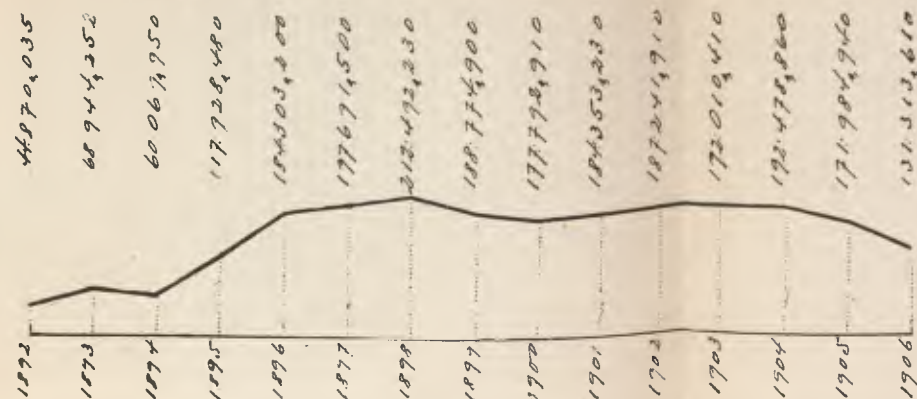 44.870,035
68 944,252
60 067,950
117.928,480
184303,200
197691,500
212.492,230
188.774,900
177.792,910
184353,230
187241,910
192.010,410
192.478,860
171.984,940
131.313,610
1892
1893
1894
1895
1896
1897
1898
1899
1900
1901
1902
1903
1904
1905
1906